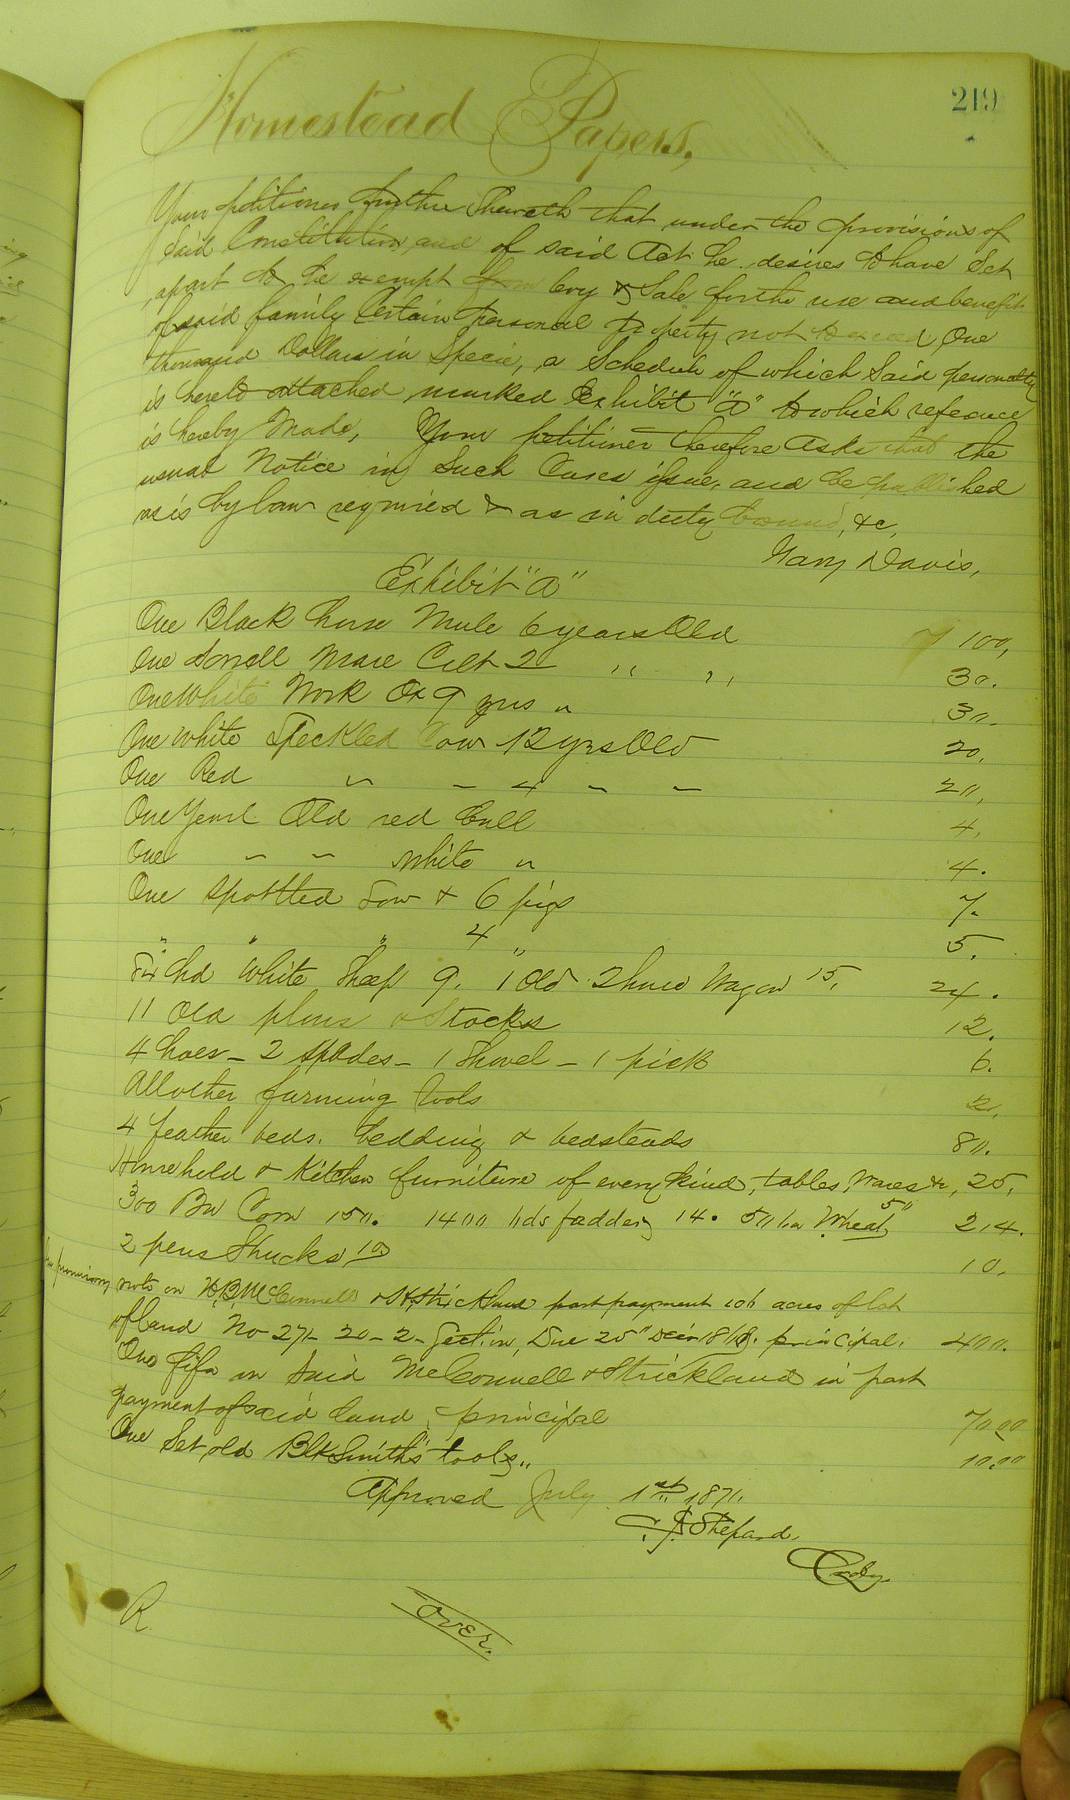 219
Homestead Papers,
Your petitioner further Sheweth that under the provisions of
Said Constitution, and of said Act he desires to have Set
apart to be exempt from levy & Sale for the use and benefit
of said family Certain personal property not to exceed One
thousand Dollars in Specie, a Schedule of which Said personalty
is hereto attached marked Exhibit "A" to which reference
is hereby Made, Your petitioner therefore asks that the
usual Notice in Such Cases issue, and be published
as is by law required & as in duty bound, &c,
Davis,
Exhibit "A"
One Black horse Mule 6 years Old 100,
One Sorrell Mare Colt 2 " " 30.
One White Work Ox 9 yrs " 30.
One white Speckled Cow 12 yrs Old 20,
One Red " - 4 - - 20,
One Year Old red Bull 4,
One - - white " 4.
One Spottted Sow & 6 pigs 7.
" " " 4 " 5.
Six hd White Sheep 9. 1 Old 2 horse Wagon 15, 24.
11 Old plows & Stocks 12.
4 hoes - 2 Spades - 1 Shovel - 1 pick 6.
All other farming tools 2,
4 feather beds, bedding & bedsteads 80.
Household & Kitchen furniture of every kind, tables, Wares &c, 25,
300 Bu Corn 150. 1400 bds fadder 14. 50 bu Wheat 50 214.
2 pens Shucks 10 10.
promissory note on McConnell & Strickland part payment 106 acres of lot
of land No 271 - 20 - 2 - Section, Due 25" principal, 400.
One fifa on Said McConnell & Strickland in part
payment of said land, principal 70.00
One Set old BlkSmith's tools,, 10.00
Approved July 1st 1871.
Shepard
Ordy.
R
Over.